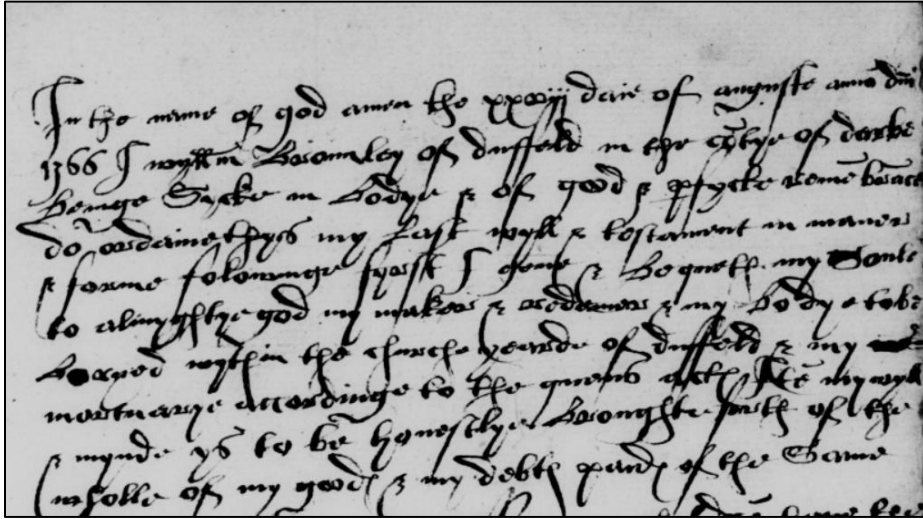 In the name of god amen the xxviij daie of auguste anno dni
1566 I wyllm Bromley of duffeld in the cōtye of darbe
Beinge Sycke in Bodye & of good & pfycte remēbrāce
do ordaine thyss my Last wyll & testament in maner
& forme folowinge fyrst I geve & Bequeth my Soule
to almyghtye god my maker & redemer & my Bodye to be
Buryed wythin the churche yearde of duffeld & my
mortuarye accordinge to the quens acte Itē my wyll
& mynde ys to be honestlye Broughte forth of the
wholle of my goods & my debts payd of the Same